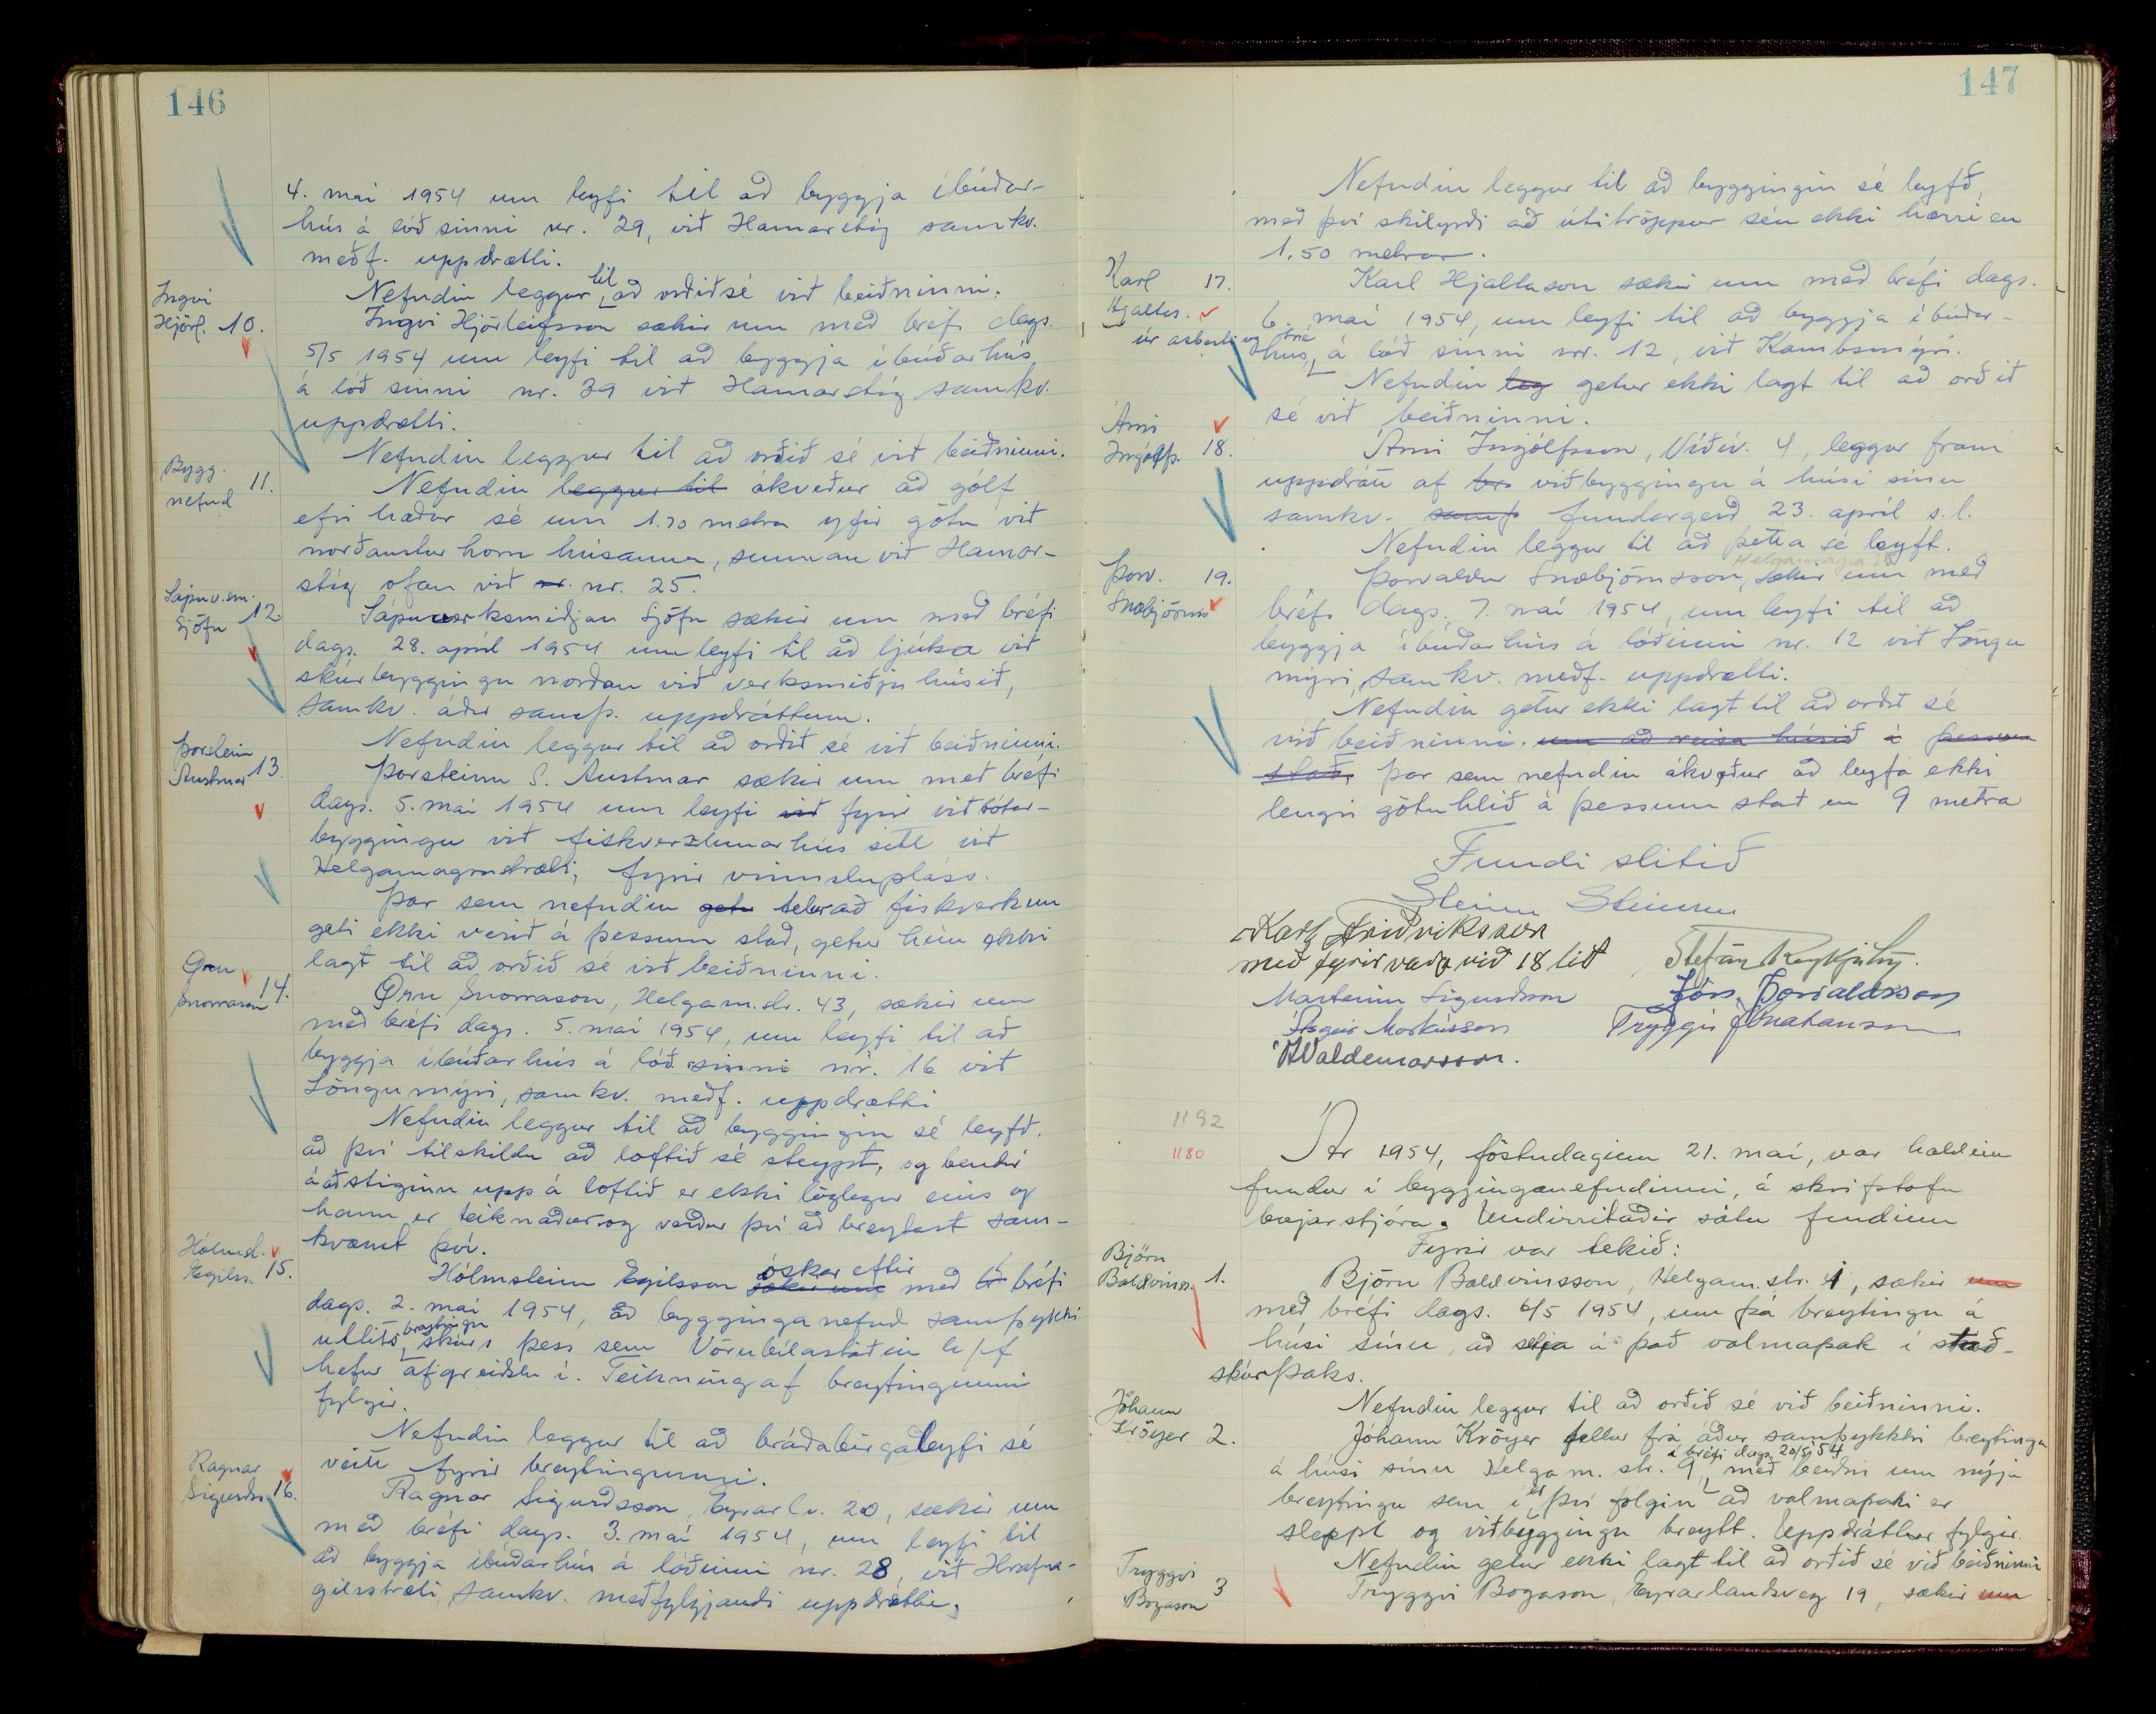 146
4. maí 1954 um leyfi til að byggja íbúðar-
hús á lóð sinni nr. 29, við Hamarstíg samkv.
meðf. uppdrætti.
Nefndin leggur til að orðið sé við beiðninni.
Ingvi
Hjörl. 10.
Ingvi Hjörleifsson sækir um með bréfi dags.
5/5 1954 um leyfi til að byggja íbúðarhús
á lóð sinni nr. 39 við Hamarstíg samkv.
uppdrætti.
Nefndin leggur til að orðið sé við beiðninni.
Bygg.
nefnd 11.
Nefndin leggur til ákveður að gólf
efri hæðar sé um 1.70 metra yfir götu við
norðaustur horn húsanna, sunnan við Hamar-
stíg ofan við nr. nr. 25.
Sápuv.sm.
Sjöfn 12.
Sápuverksmiðjan Sjöfn sækir um með bréfi
dags. 28. apríl 1954 um leyfi til að ljúka við
skúrbyggingu norðan við verksmiðjuhúsið,
samkv. áður samþ. uppdráttum.
Nefndin leggur til að orðið sé við beiðninni.
Þorstein
Austmar 13.
Þorsteinn S. Austmar sækir um með bréfi
dags. 5. maí 1954 um leyfi við fyrir viðbótar-
byggingu við fiskverzlunarhús sitt við
Helgamagrastræti, fyrir vinnslupláss.
Þar sem nefndin getu telur að fiskverkun
geti ekki verið á þessum stað, getur hún ekki
lagt til að orðið sé við beiðninni.
Örn
Snorrason 14.
Örn Snorrason, Helgam.str. 43, sækir um
með bréfi dags. 5. maí 1954, um leyfi til að
byggja íbúðarhús á lóð sinni nr. 16 við
Löngumýri, samkv. meðf. uppdrætti
Nefndin leggur til að byggingin sé leyfð,
að því tilskildu að loftið sé steypt, og bendir
á að stiginn upp á loftið er ekki löglegur eins og
hann er teiknaður og verður því að breytast sam-
kvæmt því.
Hólmst.
Egilss. 15.
Hólmsteinn Egilsson sækir um óskar eftir með br bréfi
dags. 2. maí 1954, að bygginganefnd samþykki
útlitsbreytingu skúrs þess sem Vörubílastöðin h/f
hefur afgreiðslu í. Teikning af breytingunni
fylgir.
Nefndin leggur til að bráðabirgðaleyfi sé
veitt fyrir breytingunni.
Ragnar
Sigurðss. 16.
Ragnar Sigurðsson, Eyrarlv. 20, sækir um
með bréfi dags. 3. maí 1954, um leyfi til
að byggja íbúðarhús á lóðinni nr. 28, við Hrafna-
gilsstræti, samkv. meðfylgjandi uppdrætti.
147
Nefndin leggur til að byggingin sé leyfð,
með því skilyrði að útitröppur séu ekki hærri en
1.50 metrar.
Karl
Hjaltas. 17.
Karl Hjaltason sækir um með bréfi dags.
6. maí 1954, um leyfi til að byggja íbúðar-
hús, úr asbesti og tré á lóð sinni nr. 12, við Kambsmýri.
Nefndin leg getur ekki lagt til að orðið
sé við beiðninni.
Árni
Ingólfs. 18.
Árni Ingólfsson, Víðiv. 4, leggur fram
uppdrátt af br viðbyggingu á húsi sínu
samkv. samþ fundargerð 23. apríl s.l.
Nefndin leggur til að þetta sé leyft.
Helgamagra 28
Þorv.
Snæbjörnss 19.
Þorvaldur Snæbjörnsson, sækir um með
bréfi dags. 7. maí 1954, um leyfi til að
byggja íbúðarhús á lóðinni nr. 12 við Löngu
mýri, samkv. meðf. uppdrætti.
Nefndin getur ekki lagt til að orðið sé
við beiðninni. um að reisa húsið á þessum
stað, þar sem nefndin ákveður að leyfa ekki
lengri götuhlið á þessum stað en 9 metra
Fundi slitið
Steinn Steinsen
Karl Friðriksson
með fyrirvara við 18 lið
Stefán Reykjalín.
Marteinn Sigurðsson
Jón Þorvaldsson
Ásgeir Markússon
Tryggvi Jónatansson
Á Valdemarsson.
1192
1180
Ár 1954, föstudaginn 21. maí, var haldinn
fundur í bygginganefndinni, á skrifstofu
bæjarstjóra. Undirritaðir sátu fundinn
Fyrir var tekið:
Björn
Baldvinss. 1.
Björn Baldvinsson, Helgam.str. 4, sækir um
með bréfi dags. 6/5 1954, um þá breytingu á
húsi sínu, að setja á það valmaþak í stað-
skúrþaks.
Nefndin leggur til að orðið sé við beiðninni.
Jóhann
Kröyer 2.
Jóhann Kröyer fellur frá áður samþykktri breytingu
á húsi sínu Helgam. str. 9, í bréfi dags. 20/5 54 með beiðni um nýja
breytingu sem í er því fólgin að valmaþaki er
sleppt og viðbyggingu breytt. Uppdráttur fylgir.
Nefndin getur ekki lagt til að orðið sé við beiðninni
Tryggvi
Bogason 3
Tryggvi Bogason, Eyrarlandsveg 19, sækir um